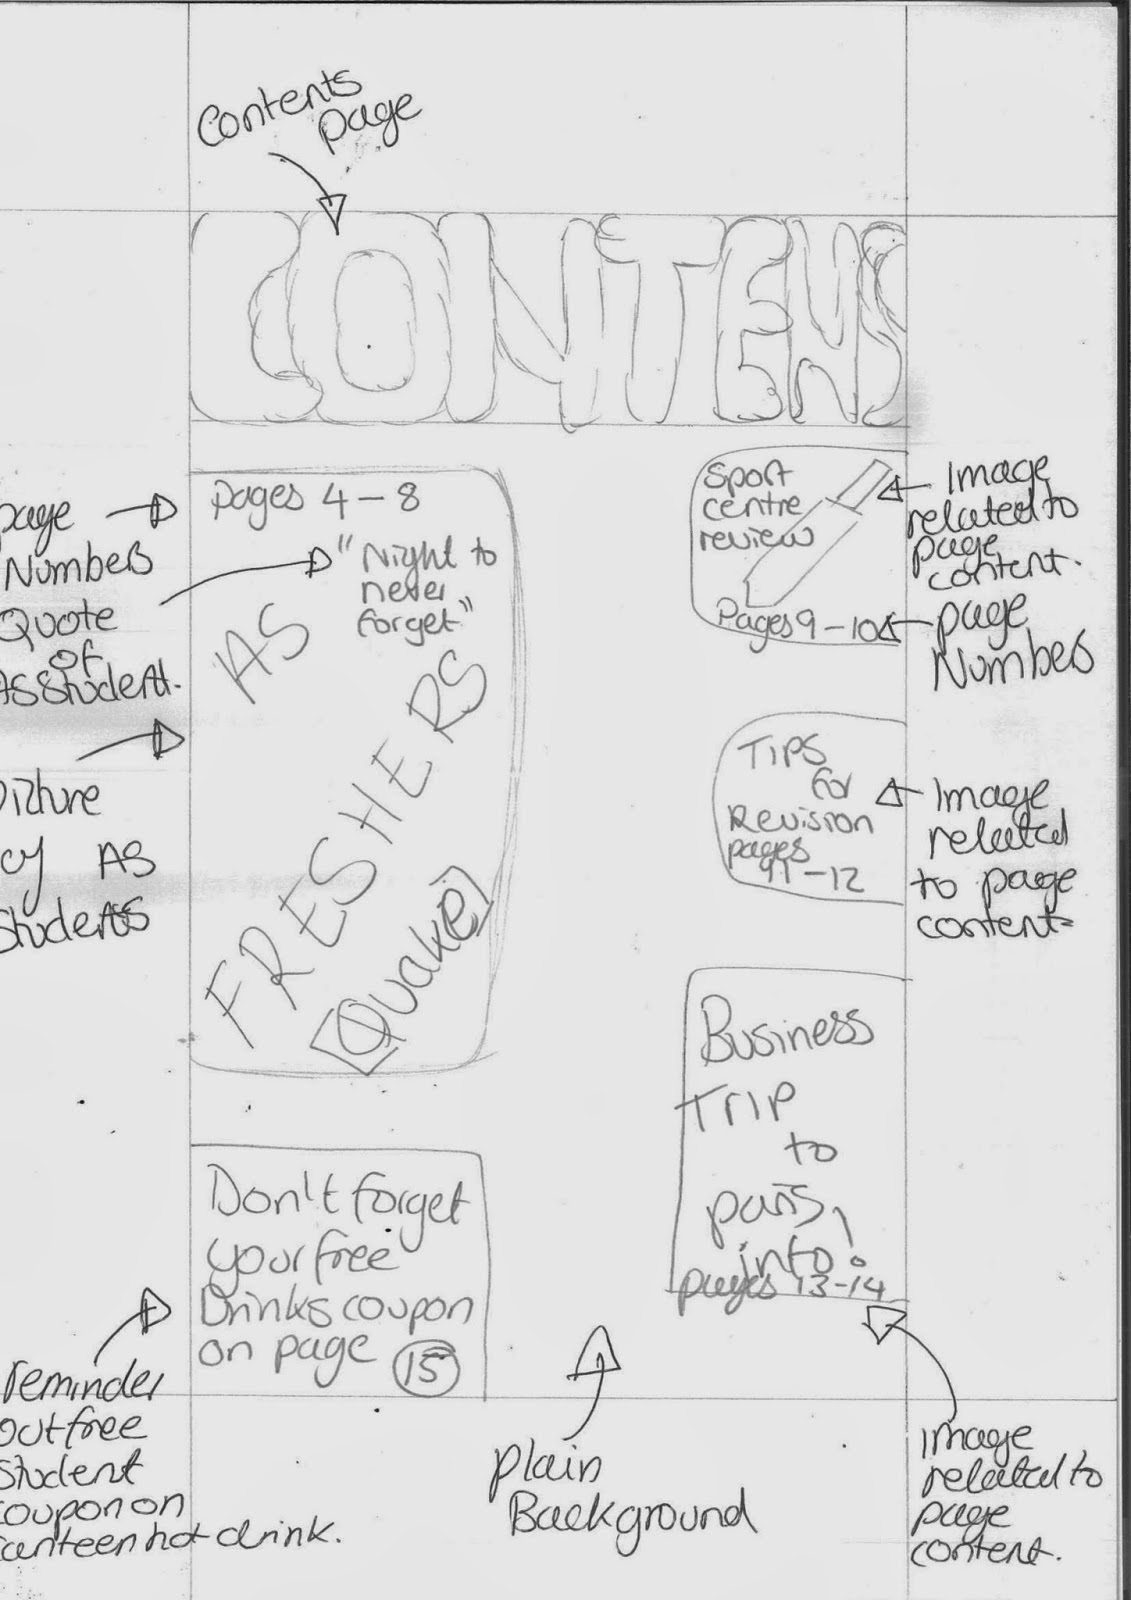 Contents
page
CONTENS
Pages 4-8
"Night to
never
forget"
AS
FRESHERS
Quake
Sport
centre
review
Pages 9-10
TIPS
for
Revision
pages
11-12
Business
TRIP
to
paris,
info.
pages 13-14
Don't forget
your free
Drinks coupon
on page 15
page
Numbers
Quote
of
AS Student.
Picture
of AS
Students
reminder
out free
student
coupon on
canteen hot drink.
Plain
Background
Image
related to
page
content.
page
Numbers
Image
related
to page
content
Image
related to
page
content.